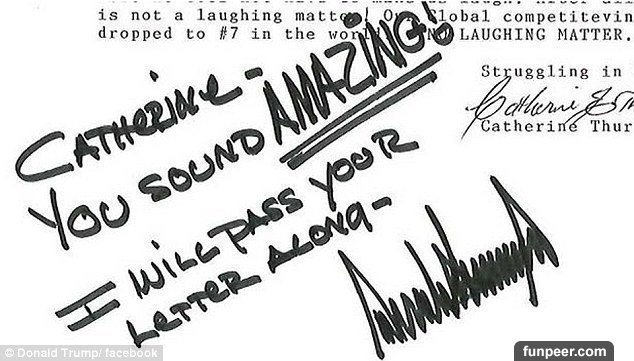 is not a laughing matter! Our Global competitevin
dropped to #7 in the world NO LAUGHING MATTER.
Struggling in
Catherine
Catherine Thur
CATHERINE-
YOU SOUND AMAZING!
I WILL PASS YOUR
LETTER ALONG-
© Donald Trump/ facebook
funpeer.com